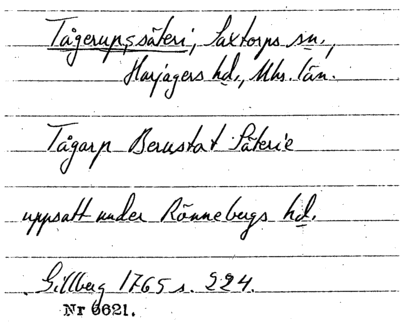 Tågerupssäteri, Saxtorps sn.,
Harjagers hd., Mhs. län.
Tågarp Berustat Säterie
uppsatt under Rönnebergs hd.
Gillberg 1765 s. 224.
Nr 6621.